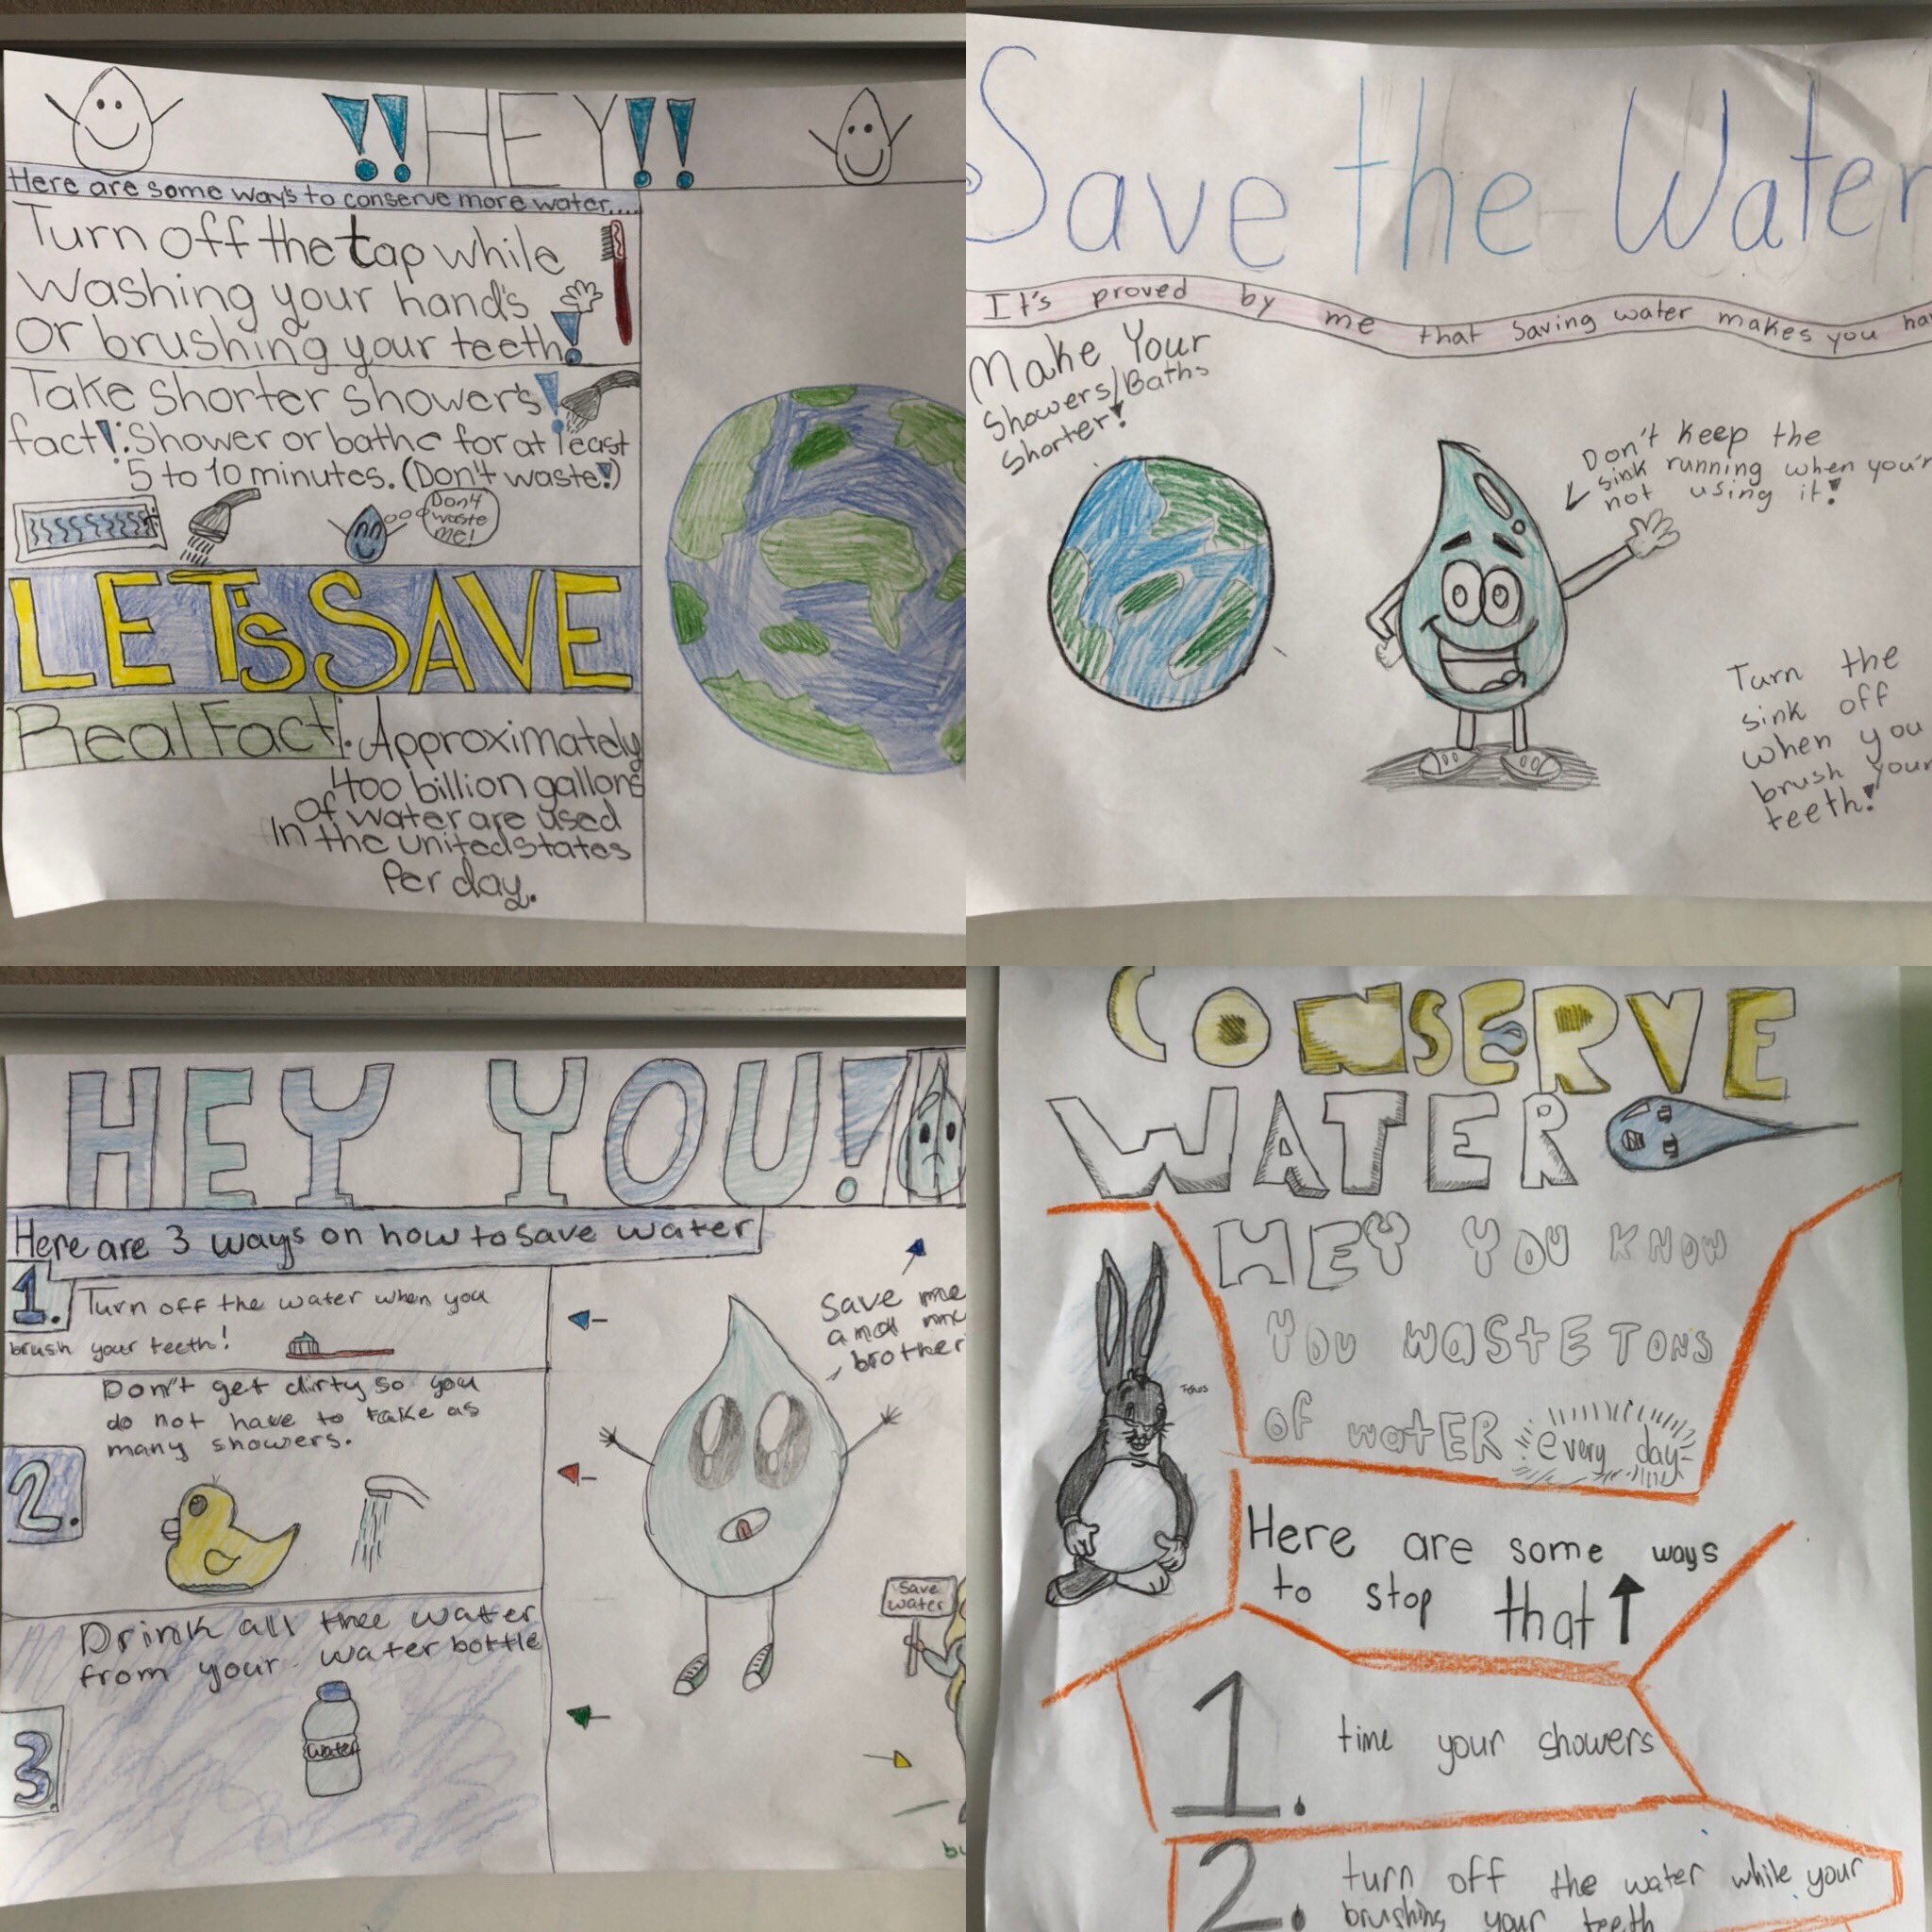 !!HEY!!
Here are some ways to conserve more water....
Turn off the tap while
washing your hand's
or brushing your teeth!
Take shorter shower's!
fact!: Shower or bathe for at least
5 to 10 minutes. (Don't waste!)
Don't
waste
me!
LET's SAVE
Real Fact: Approximately
400 billion gallons
of water are used
in the united states
Per day.
Save the Water
It's proved by me that saving water makes you
Make Your
Showers/Baths
Shorter!
Don't keep the
sink running when you'r
not using it!
Turn the
sink off
when you
brush your
teeth!
HEY YOU!
Here are 3 ways on how to save water
1. Turn off the water when you
brush your teeth!
2. Don't get dirty so you
do not have to take as
many showers.
3. Drink all thee water
from your water bottle
water
Save me
and my
brother
Save
water
CONSERVE
WATER
HEY YOU KNOW
YOU WASTE TONS
OF WATER every day
Here are some ways
to stop that
1. time your showers
2. turn off the water while your
brushing your teeth